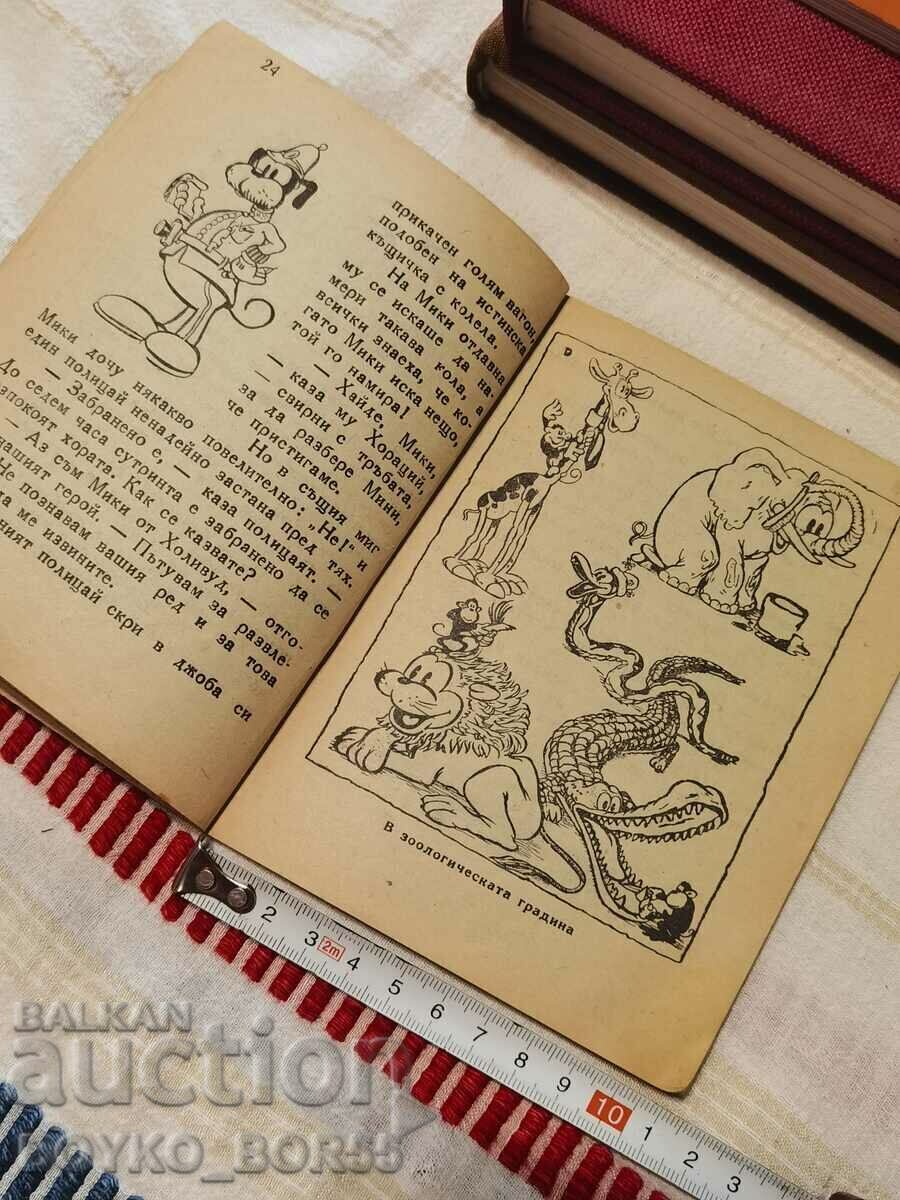 24
прикачен голям вагон,
подобен на истинска
къщичка с колела.
На Мики отдавна
му се искаше да на-
мери такава кола, а
всички знаеха, че ко-
гато Мики иска нещо,
той го намира!
— Хайде, Мики,
— каза му Хораций,
— свирни с тръбата,
за да разбере Мини,
че пристигаме.
Но в същия миг
Мики дочу някакво повелително: „Не!“ и
един полицай ненадейно застана пред тях.
— Забранено е, — каза полицаят. —
До седем часа сутринта е забранено да се
зпокоят хората. Как се казвате?
— Аз съм Мики от Холивуд, — отго-
нашият герой. — Пътувам за развле-
Не познавам вашия ред и за това
да ме извините.
ният полицай скри в джоба си
В зоологическата градина
2 3 2m 4 5 6 7 8 9 10 1 2 3
BALKAN
auction
BOYKO_BOR55